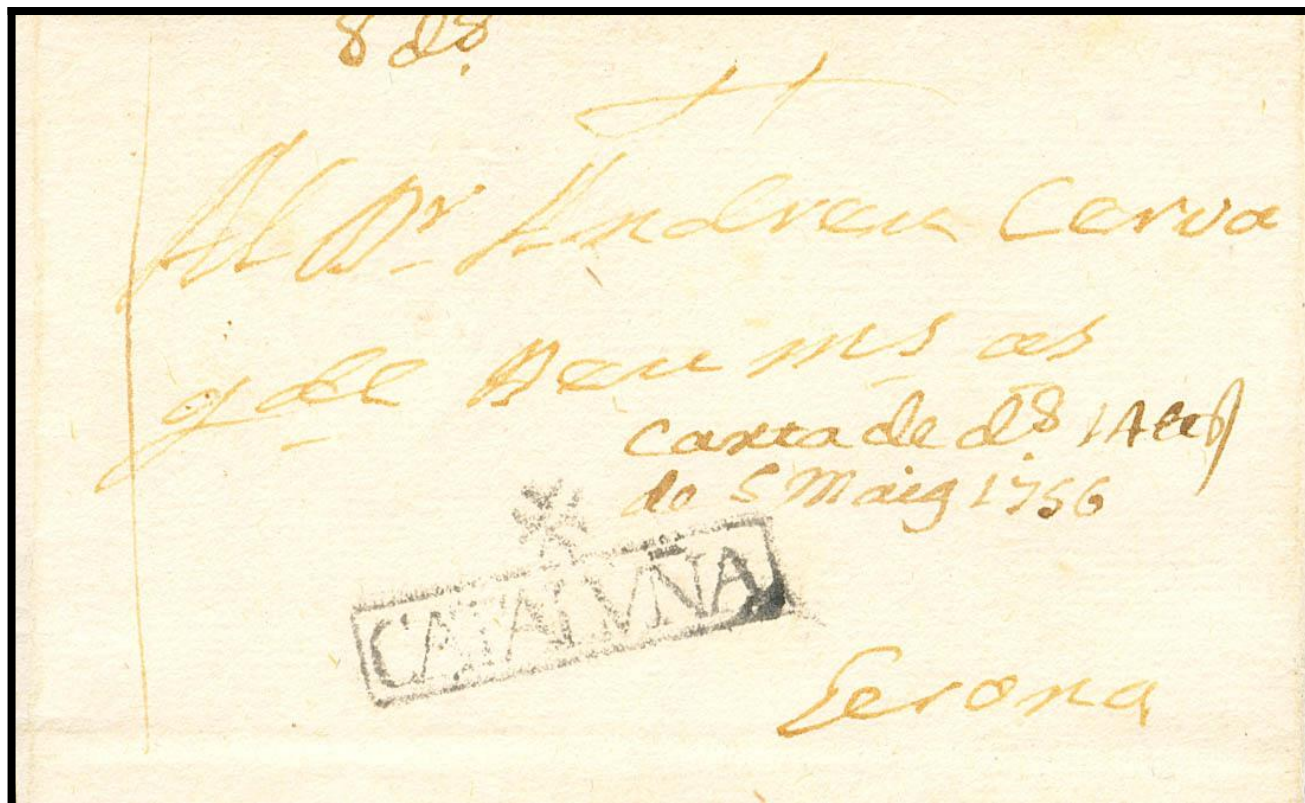 8 ds.
Al Dr. Andreu Cerva
gde Deu ms as
Carta de ds
de 5 Maig 1756
CATALVÑA
Gerona